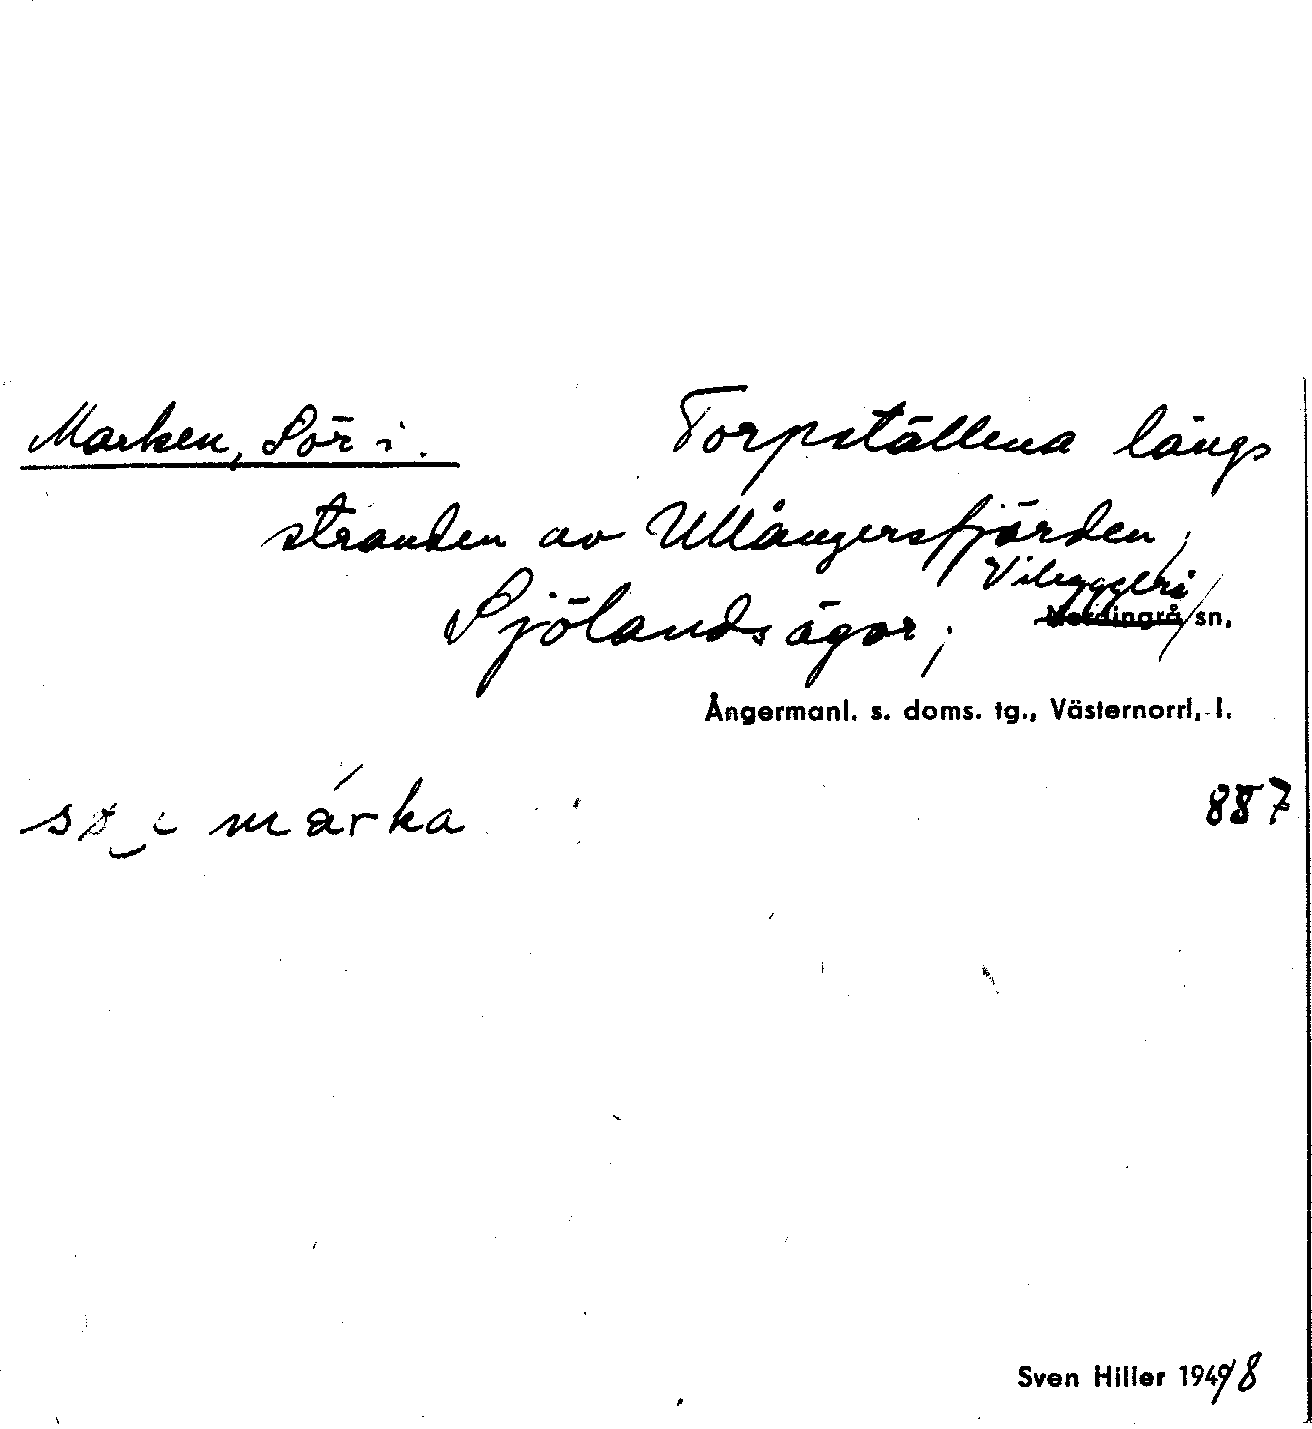 Marken, Sör i. Torpställena längs
stranden av Ullångersfjärden,
Sjölands ägor, Vibyggeri
Nordingrå sn,
Ångermanl. s. doms. tg., Västernorrl, l.
márka 887
Sven Hiller 1949 8